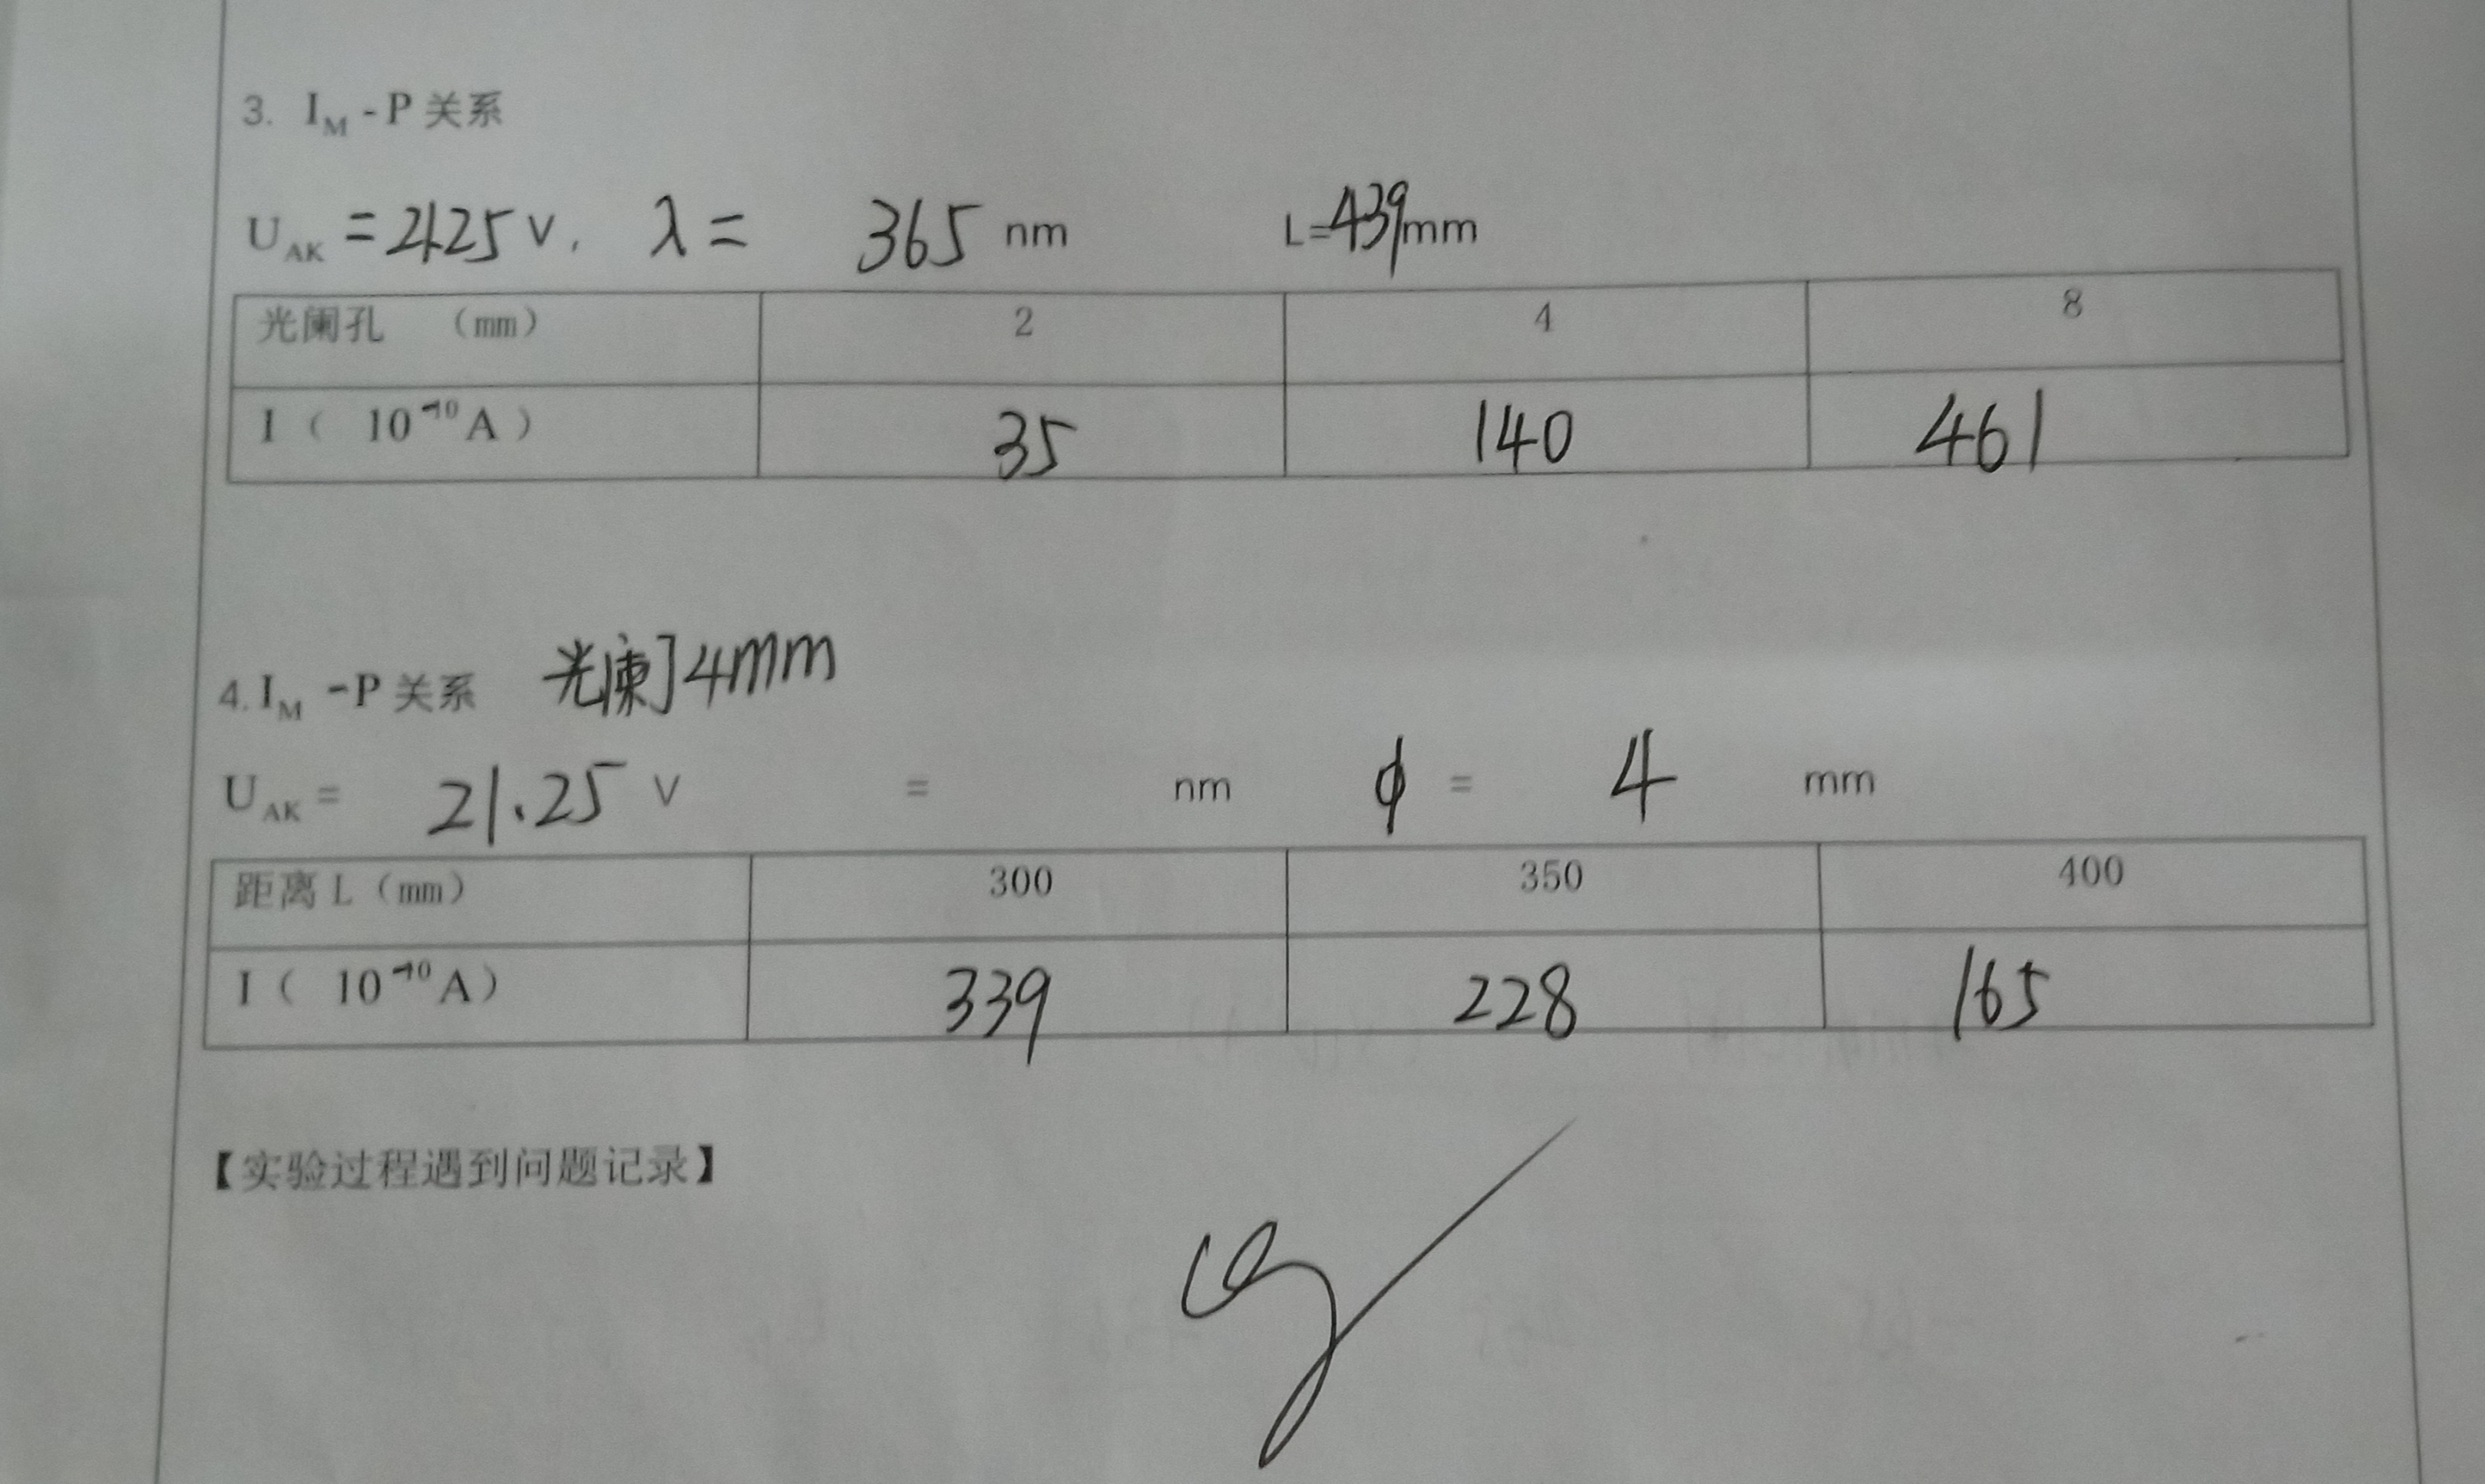 3. I_M - P 关系
U_AK = 21.25 V. λ = 365 nm L=439mm
光阑孔 （mm） 2 4 8
I（ 10^-10 A ） 35 140 461
4. I_M - P 关系 光阑4mm
U_AK = 21.25 V = nm ϕ = 4 mm
距离 L（mm） 300 350 400
I（ 10^-10 A） 339 228 165
【实验过程遇到问题记录】